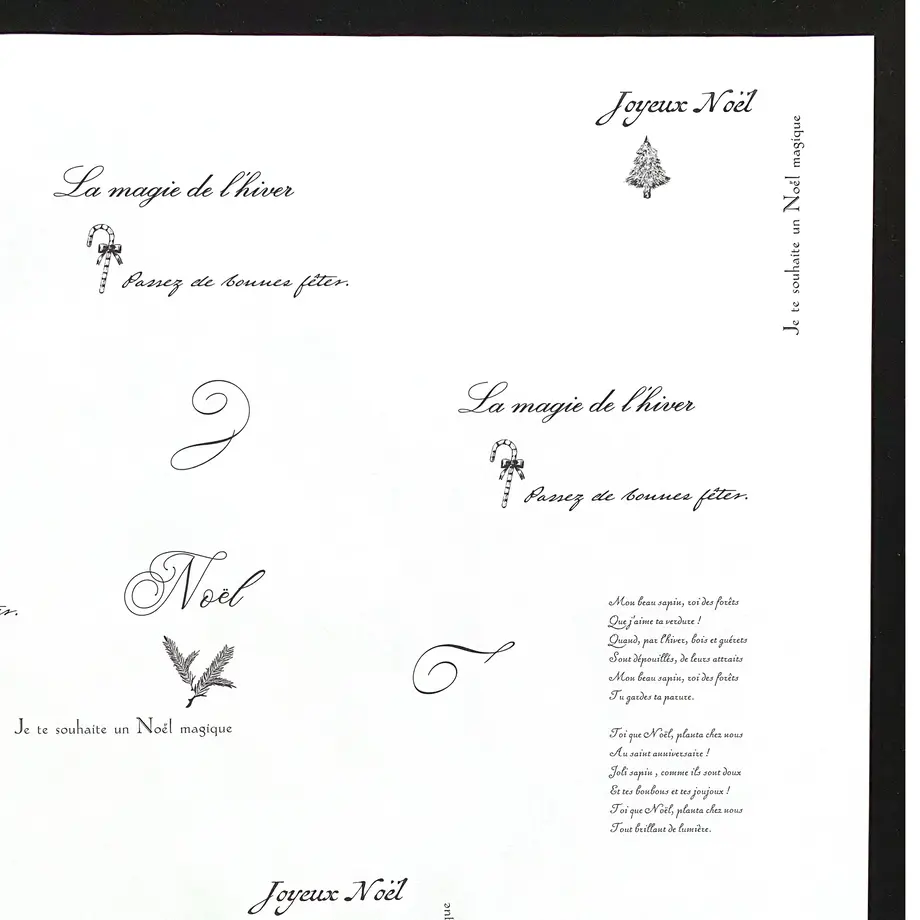 Joyeux Noël
Je te souhaite un Noël magique
La magie de l'hiver
Passez de bonnes fêtes.
La magie de l'hiver
Passez de bonnes fêtes.
Noël
Je te souhaite un Noël magique
Mon beau sapin, roi des forêts
Que j'aime ta verdure !
Quand, par l'hiver, bois et guérets
Sont dépouillés, de leurs attraits
Mon beau sapin, roi des forêts
Tu gardes ta parure.
Toi que Noël, planta chez nous
Au saint anniversaire !
Joli sapin , comme ils sont doux
Et tes bonbons et tes joujoux !
Toi que Noël, planta chez nous
Tout brillant de lumière.
Joyeux Noël